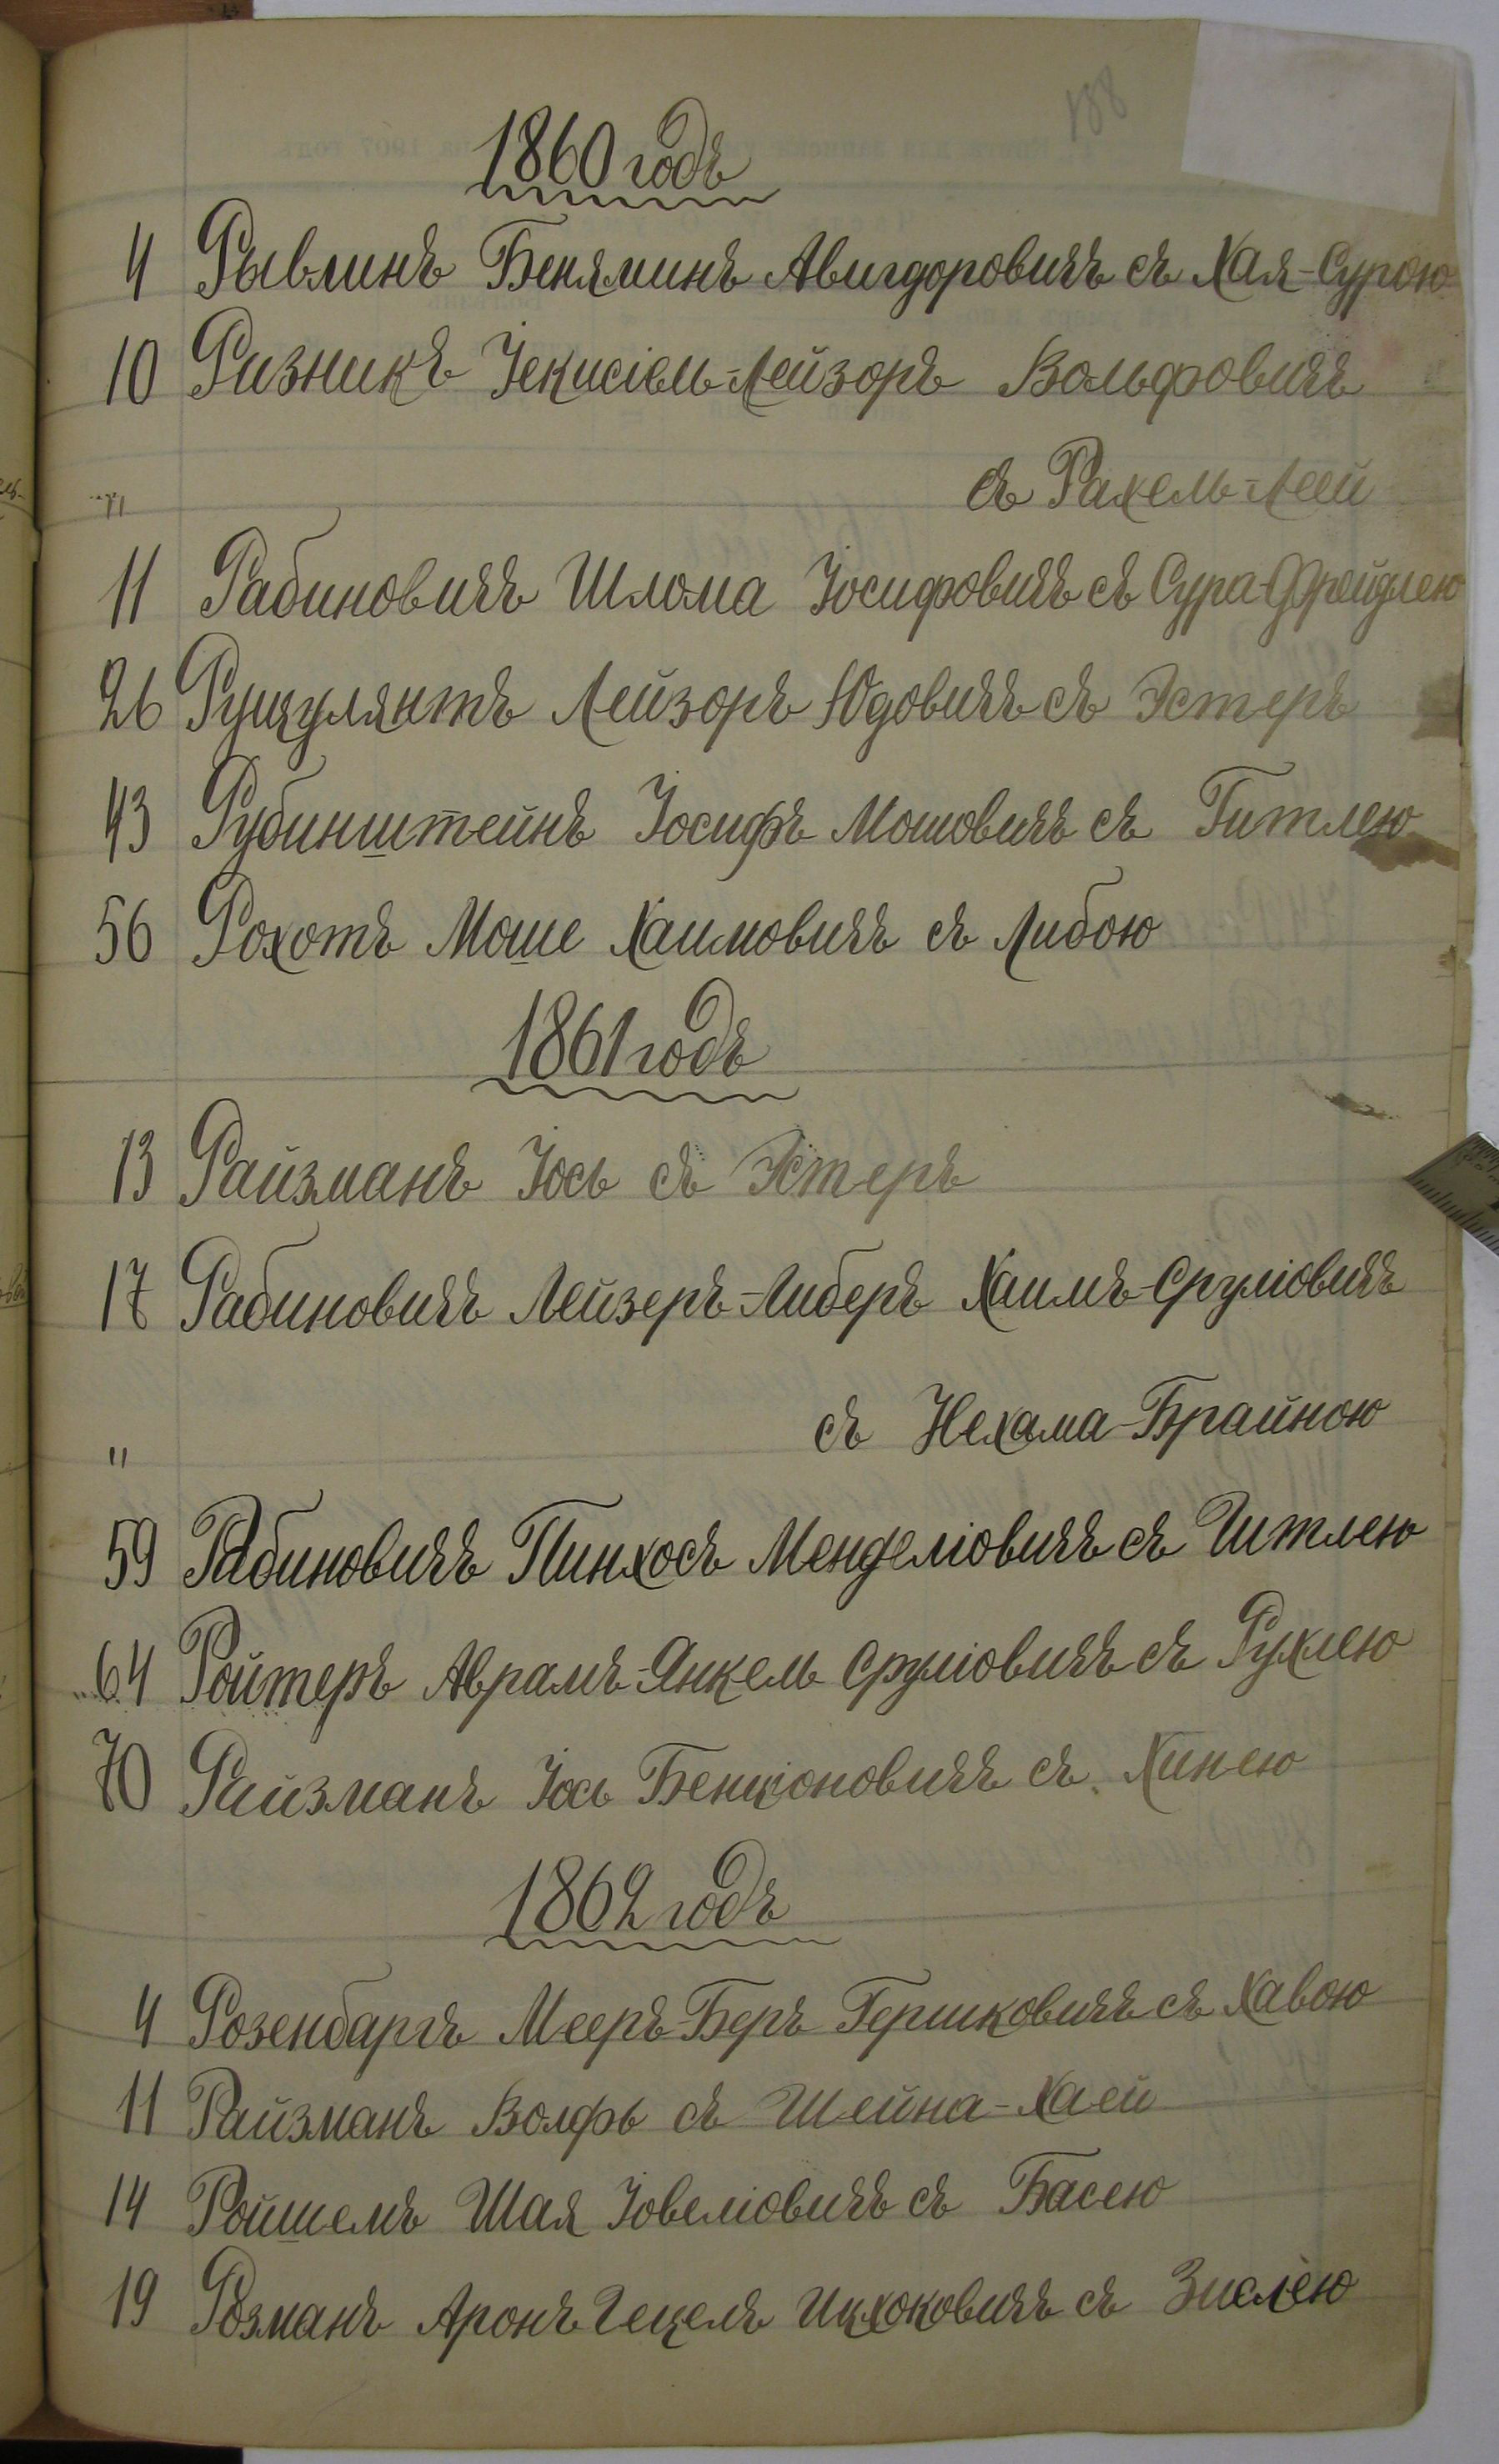 188
1860 годъ
4 Рывлинъ Беняминъ Авигдоровичъ съ Хая-Сурою
10 Ризникъ Іекисіель-Лейзоръ Вольфовичъ
" съ Рахель-Леей
11 Рабиновичъ Шлома Іосифовичъ съ Сура-Фрейдлею
26 Рущулянтъ Лейзоръ Юдовичъ съ Эстеръ
43 Рубинштейнъ Іосифъ Мошовичъ съ Гитлею
56 Рохотъ Моше Хаимовичъ съ Либою
1861 годъ
13 Райзманъ Іось съ Эстеръ
17 Рабиновичъ Лейзеръ-Либеръ Хаимъ-Сруліовичъ
" съ Нехама-Брайною
59 Рабиновичъ Пинхосъ Менделіовичъ съ Гитлею
64 Ройтеръ Аврамъ-Янкель Сруліовичъ съ Рухлею
70 Райзманъ Іось Бенціоновичъ съ Хинею
1862 годъ
4 Розенбаргъ Мееръ-Беръ Гершковичъ съ Хавою
11 Райзманъ Волфь съ Шейна-Хаей
14 Ройшемъ Шая Іовеліовичъ съ Басею
19 Розманъ Аронъ Гецель Ицхоковичъ съ